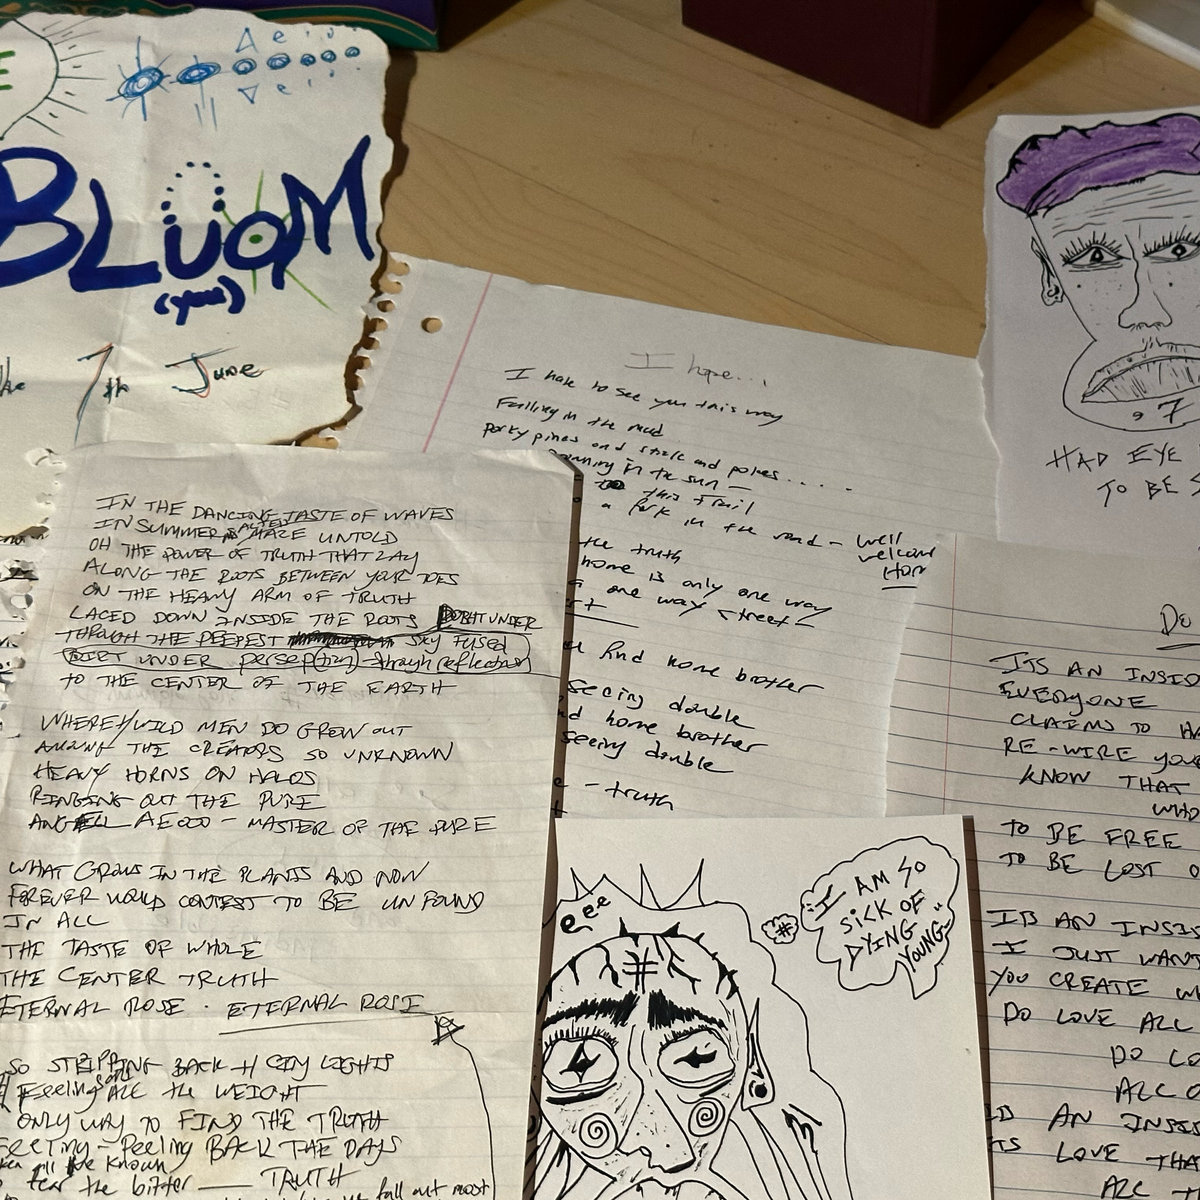 BLUOM
(you)
the 7th June
I hope...
I hate to see you this way
Falling in the mud
porky pines and stick and pokes.....
in the sun —
this trail
a fork in the road — well
welcome
Home
the truth
home is only one way
a one way street
find home brother
seeing double
home brother
seeing double
- truth
HAD EYE
TO BE
IN THE DANCING TASTE OF WAVES
IN SUMMER MAZE UNTOLD
OH THE POWER OF TRUTH THAT LAY
ALONG THE ROOTS BETWEEN YOUR TOES
ON THE HEAVY ARM OF TRUTH
LACED DOWN INSIDE THE ROOTS DIRT UNDER
THROUGH THE DEEPEST SKY FUSED
DIRT UNDER persep(tion) through reflection
TO THE CENTER OF THE EARTH
WHERE WILD MEN DO GROW OUT
AMONG THE CREATORS SO UNKNOWN
HEAVY HORNS ON HALOS
RINGING OUT THE PURE
MASTER OF THE PURE
WHAT GROWS IN THE PLANTS AND NOW
FOREVER WOULD CONTEST TO BE UNFOUND
IN ALL
THE TASTE OF WHOLE
THE CENTER TRUTH
ETERNAL ROSE . ETERNAL ROSE
SO STRIPPING BACK CITY LIGHTS
Feeling ALL the WEIGHT
ONLY WAY TO FIND THE TRUTH
Peeling BACK THE DAYS
the known
fear the bitter — TRUTH
fall out most
eee
#
I AM SO
SICK OF
DYING
YOUNG
#
DO
ITS AN INSID
EVERYONE
CLAIMS TO HA
RE-WIRE YOU
KNOW THAT
WHO
TO BE FREE
TO BE LOST O
ITS AN INSI
I JUST WANT
YOU CREATE W
DO LOVE ALL
DO LO
ALL O
AN INSI
LOVE THA
ALL